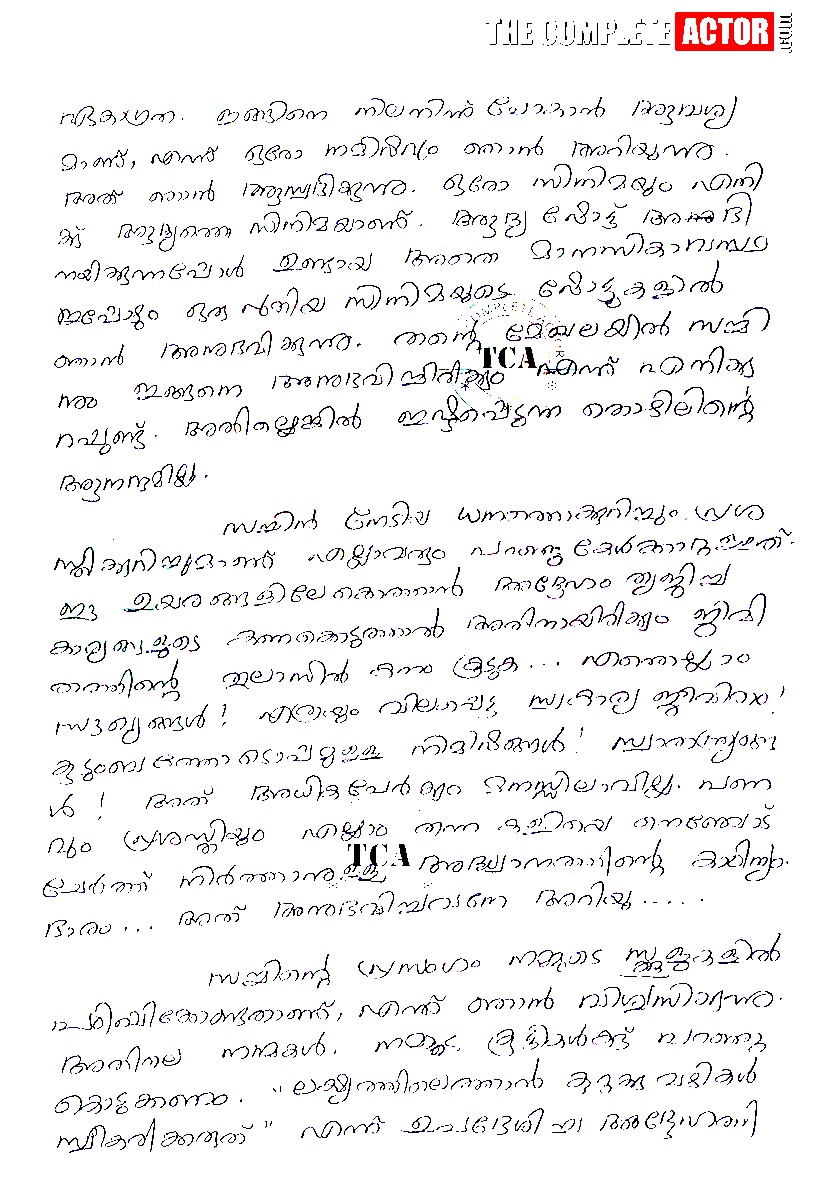 THE COMPLETE ACTOR .COM
ഇങ്ങിനെ നിലനിന്ന് പോകാൻ ആവശ്യ
മാണ്, എന്ന് ഓരോ നമിഷവും ഞാൻ അറിയുന്നു.
അത് ഞാൻ ആസ്വദിക്കുന്നു. ഓരോ സിനിമയും എനി
ക്ക് ആദ്യത്തെ സിനിമയാണ്. ആദ്യ ഷോട്ട് അഭി
നയിക്കുന്നപ്പോൾ ഉണ്ടായ അതെ മാനസികാവസ്ഥ
ഇപ്പോഴും ഒരു പുതിയ സിനിമയുടെ ഷോട്ടുകളിൽ
ഞാൻ അനുഭവിക്കുന്നു. തന്റെ മേഖലയിൽ സച്ചി
നും ഇങ്ങനെ അനുഭവിച്ചിരിക്കും എന്ന് എനിക്കു
റപ്പുണ്ട്. അതില്ലെങ്കിൽ ഇഷ്ടപ്പെടുന്ന തൊഴിലിന്റെ
ആനന്ദമില്ല.
സച്ചിൻ നേടിയ ധനത്തെക്കുറിച്ചും പ്രശ
സ്തിക്കുറിച്ചുമാണ് എല്ലാവരും പറഞ്ഞു കേൾക്കാറുള്ളത്.
ഈ ഉയരങ്ങളിലേക്കെത്താൻ അദ്ദേഹം ത്യജിച്ച
കാര്യങ്ങളുടെ കണക്കെടുത്താൽ അതിനായിരിക്കും ജീവി
തത്തിന്റെ തുലാസിൽ കനം കൂടുക... എന്തൊല്ലാം
സൗഖ്യങ്ങൾ! എത്രയും വിലപ്പെട്ട സ്വകാര്യ ജീവിതം!
കുടുംബത്തോടൊപ്പമുള്ള നിമിഷങ്ങൾ! സ്വാതന്ത്ര്യങ്ങ
ൾ! അത് അധികപേർക്കും മനസ്സിലാവില്ല. പണ
വും പ്രശസ്തിയും എല്ലാം തന്ന കളിയെ നെഞ്ചോട്
ചേർത്ത് നിർത്താനുള്ള അദ്ധ്വാനത്തിന്റെ കാഠിന്യം.
ഭാരം... അത് അനുഭവിച്ചവനേ അറിയൂ.....
സച്ചിന്റെ പ്രസംഗം നമ്മുടെ സ്കൂളുകളിൽ
പഠിപ്പിക്കേണ്ടതാണ്, എന്ന് ഞാൻ വിശ്വസിക്കുന്നു.
അതിലെ നന്മകൾ, നമ്മൾ കുട്ടികൾക്ക് പറഞ്ഞു
കൊടുക്കണം. "ലക്ഷ്യത്തിലെത്താൻ കുറുക്കുവഴികൾ
സ്വീകരിക്കരുത്" എന്ന് ഉപദേശിച്ച അദ്ദേഹത്തി
TCA
TCA